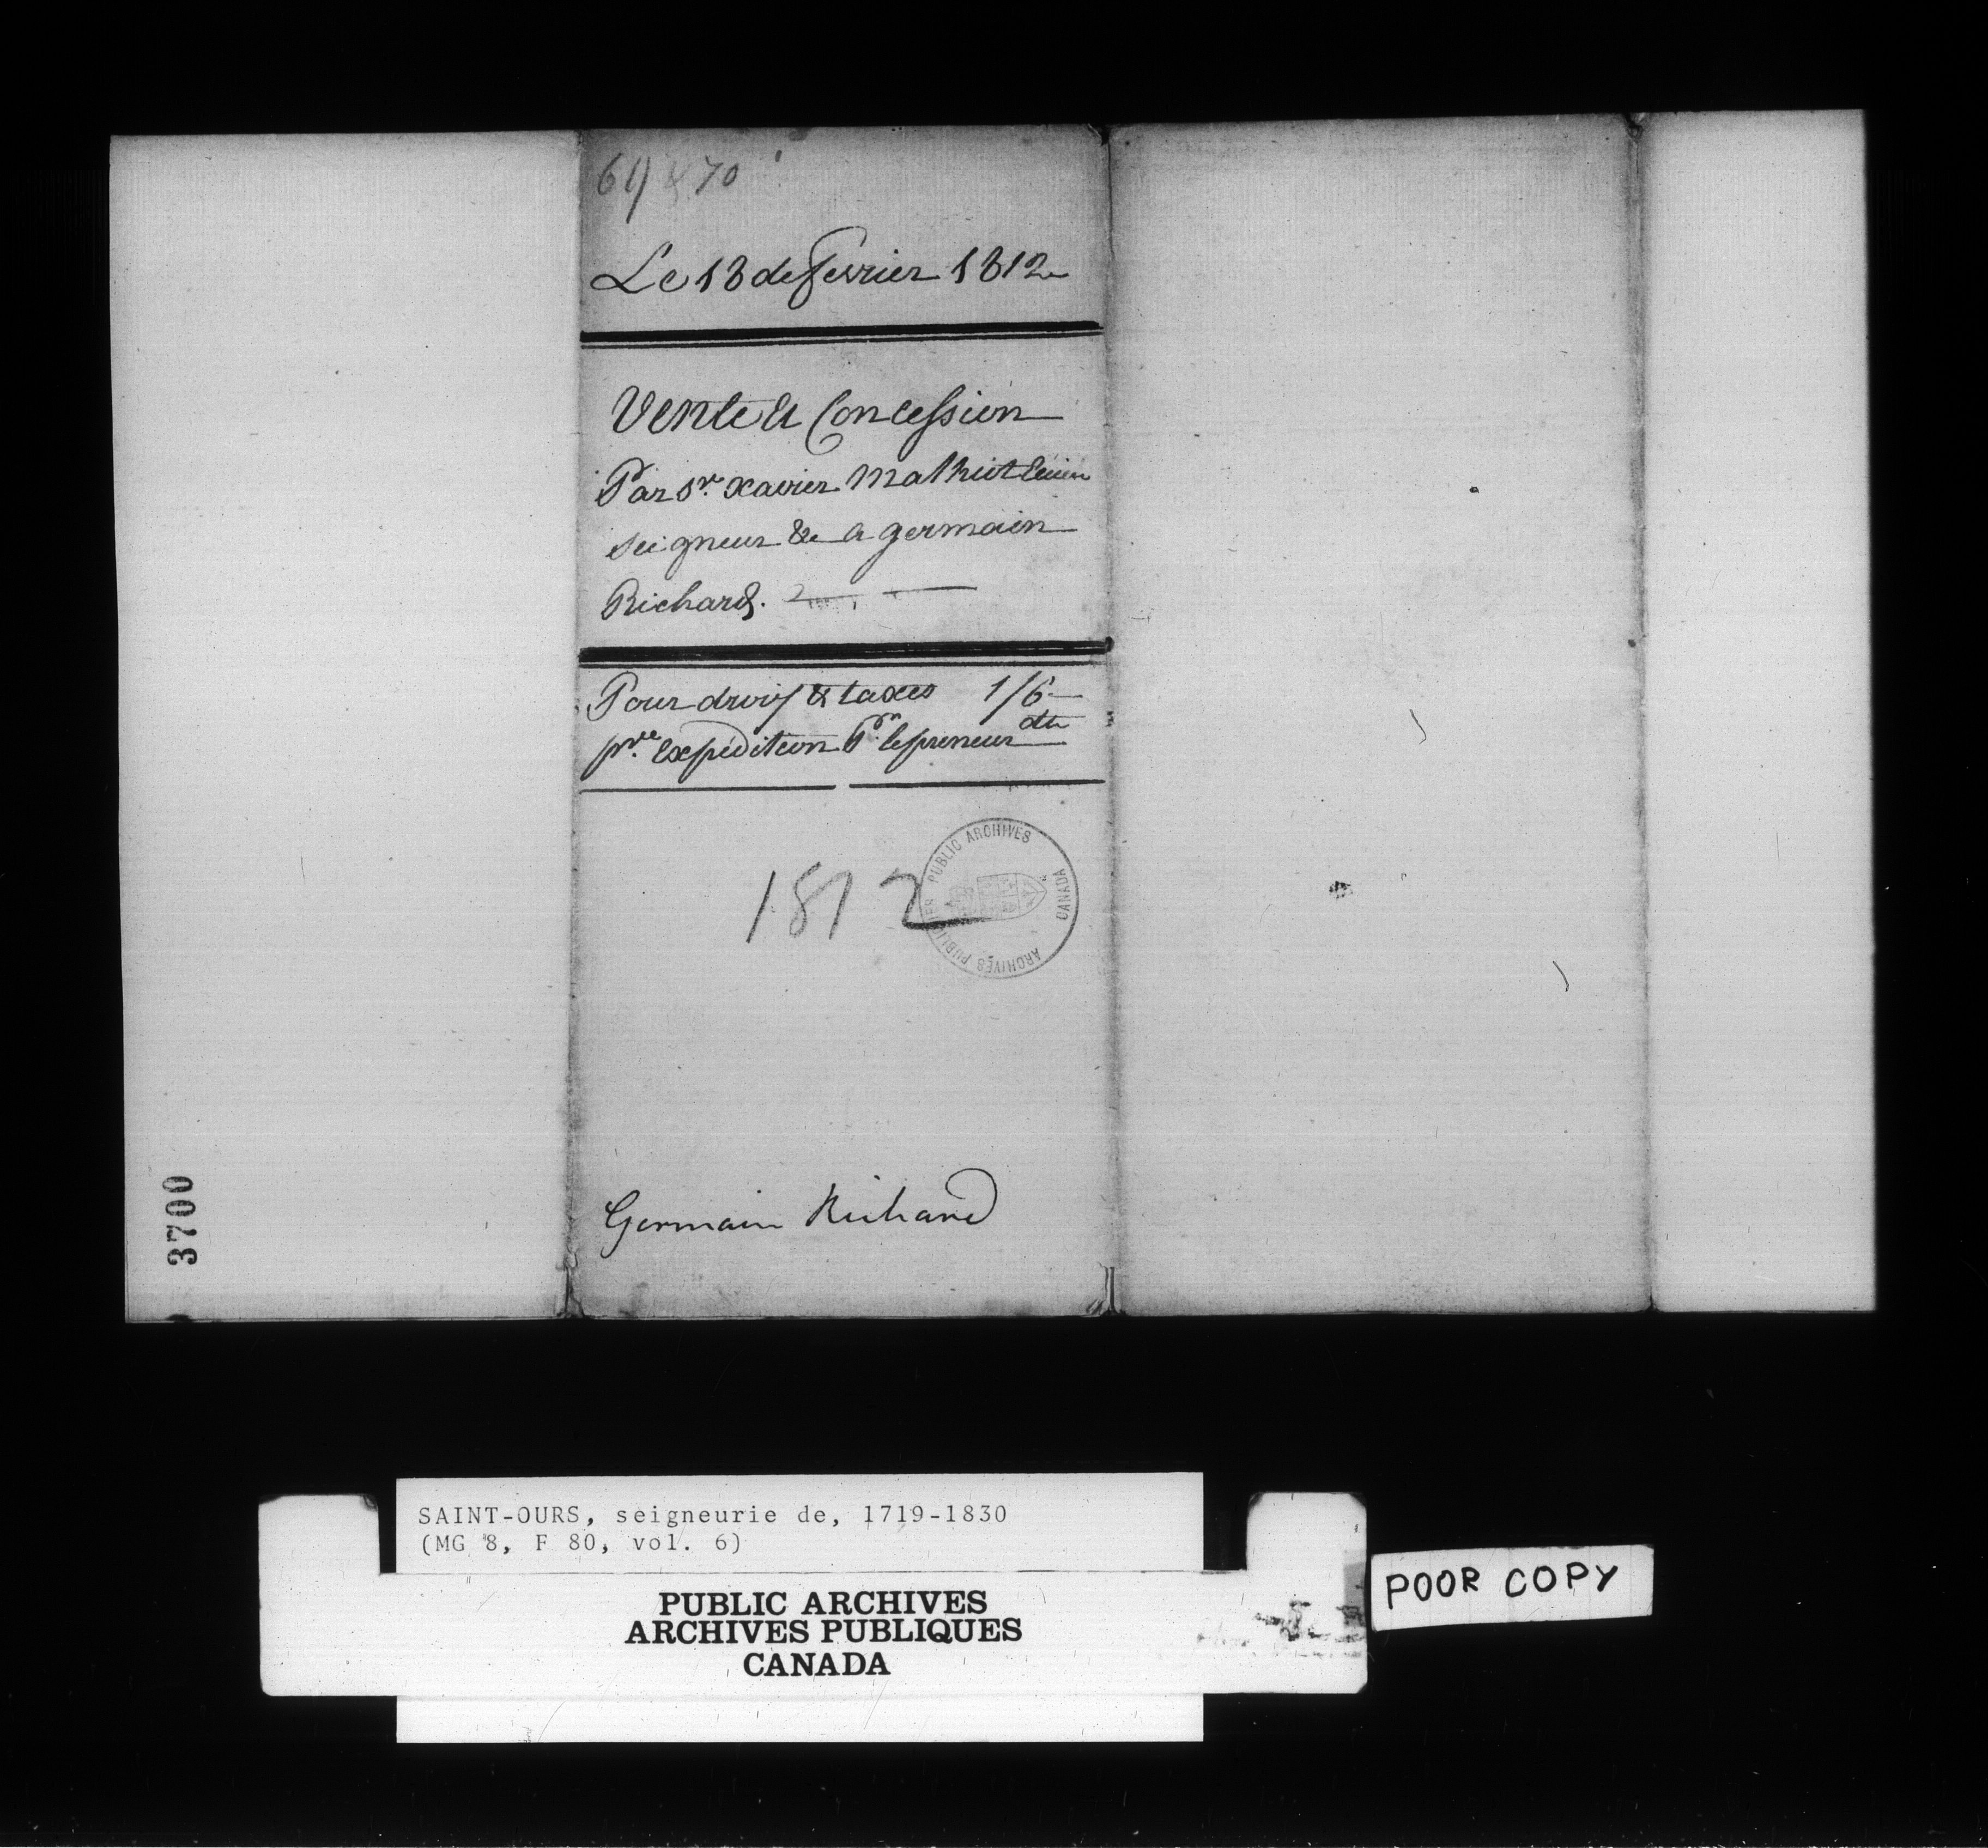 69 & 70
Le 13 de fevrier 1812
Vente & Concession
Par Sr. xavier Malhiot
seigneur &c a germain
Richard.
Pour droits & taxes 1/6
pre. Expédition Pr. le preneur du
1812
PUBLIC ARCHIVES CANADA
ARCHIVES PUBLIQUES
Germain Richard
3700
SAINT-OURS, seigneurie de, 1719-1830
(MG 8, F 80, vol. 6)
PUBLIC ARCHIVES
ARCHIVES PUBLIQUES
CANADA
POOR COPY